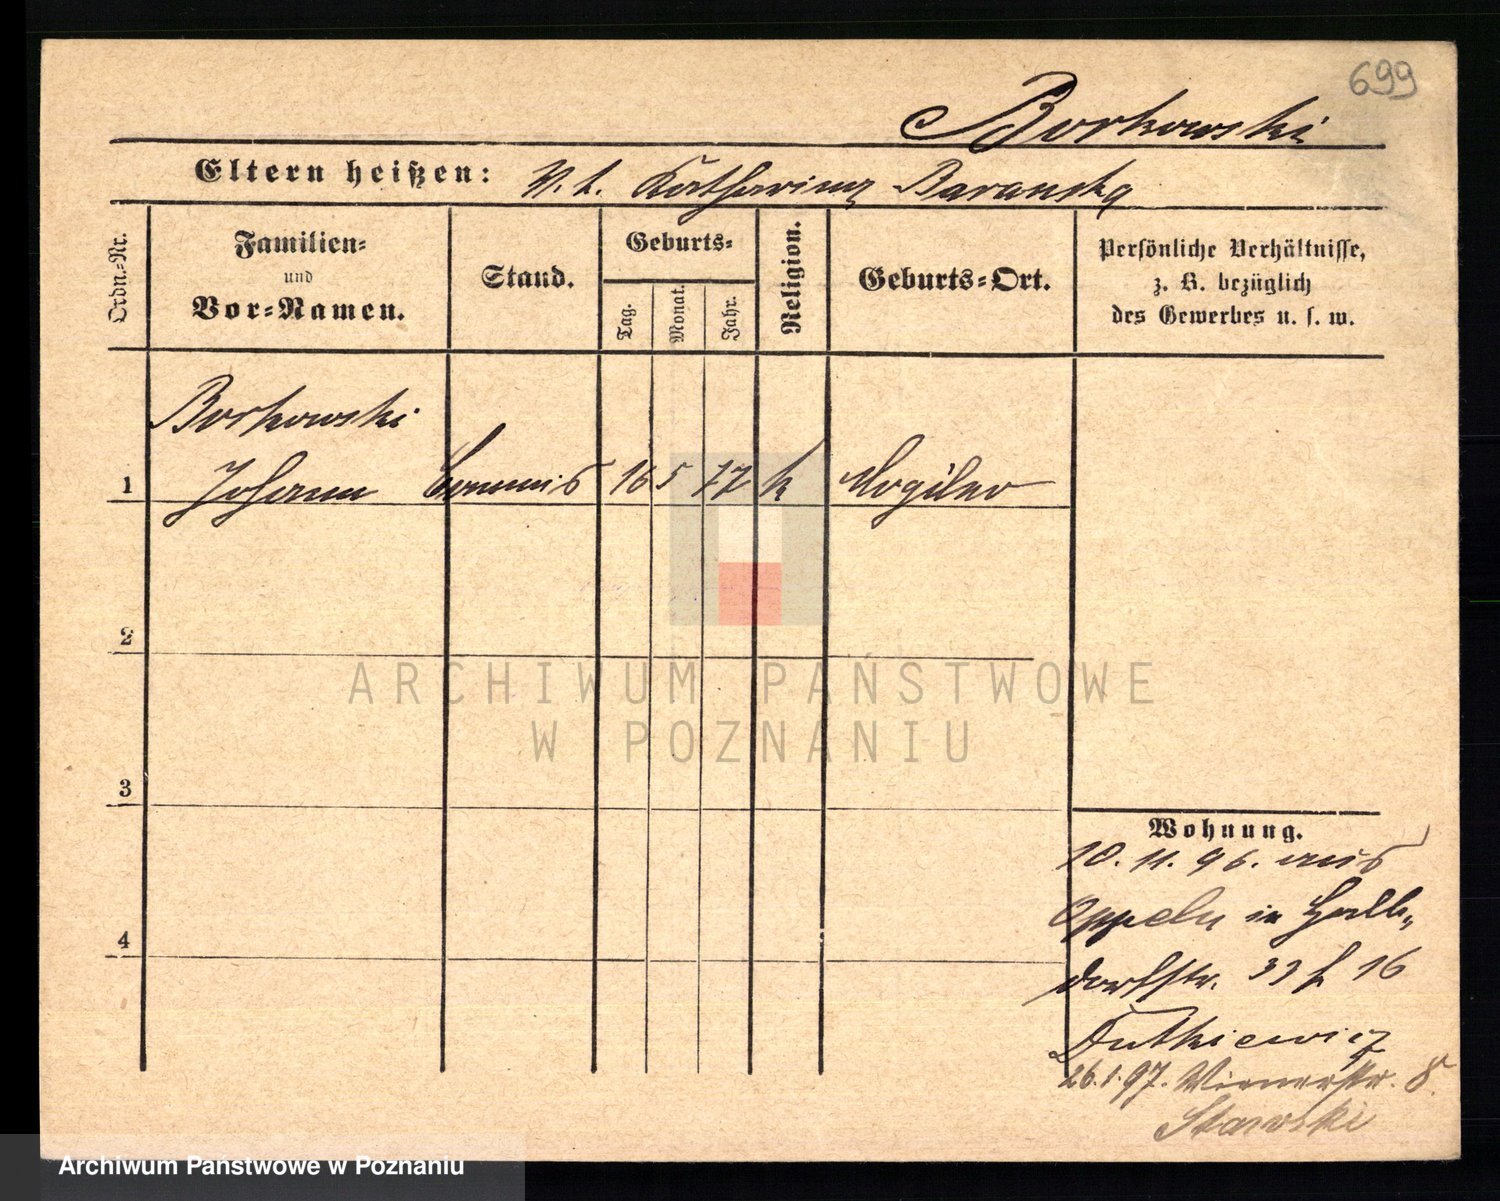 699
Borkowski
Eltern heißen: V. t. Katharina Baranska
Ordn.-Nr.
Familien-
und
Vor-Namen.
Stand.
Geburts-
Tag.
Monat.
Jahr.
Religion.
Geburts-Ort.
Persönliche Verhältnisse,
z. B. bezüglich
des Gewerbes u. s. w.
Borkowski
1 Johann Commis 16 5 77 k Mogilno
2
3
4
Wohnung.
10. 11. 96. aus
Oppeln in Halb-
dorfstr. 39 16
Dutkiewicz
26.1.97. Wienerstr. 8.
Stawski
ARCHIWUM PAŃSTWOWE
W POZNANIU
Archiwum Państwowe w Poznaniu